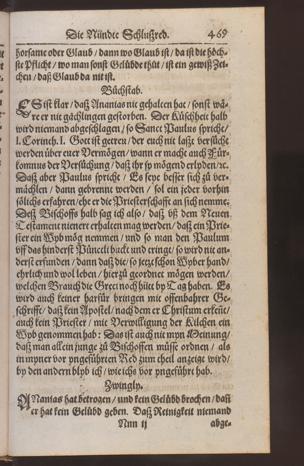 Die Nündte Schlußred. 469
horsame oder Glaub / dann wo Glaub ist / da ist die höch-
ste Pflicht / wo man sonst Gelübde thůt / ist ein gewiß Zei-
chen / daß Glaub da nit ist.
Bůchstab.
ES ist klar / daß Ananias nit gehalten hat / sonst wä-
re er nit gächlingen gestorben. Der Küschheit halb
wird niemand abgeschlagen / so Sanct Paulus spricht /
1. Corinth. 1. Gott ist getreu / der euch nit laßt versůcht
werden über euer Vermögen / wann er macht auch Für-
komnuß der Versůchung / daß ihr sy mögend erlyden / ꝛc.
Daß aber Paulus spricht / Es seye besser sich zů ver-
mächlen / dann gebrennt werden / sol ein jeder vorhin
sölichs erfahren / ehe er die Priesterschafft an sich nemme.
Deß Bischoffs halb sag ich also / daß uß dem Neuen
Testament niener erhalten mag werden / daß ein Prie-
ster ein Wyb mög nemmen / und so man den Paulum
uff das hinderst Püncktli buckt und eringt / so wird nit an-
derst erfunden / dann daß die / so jetz schon Wyber hand /
ehrlich und wol leben / hierzů geordnet mögen werden /
welchen Brauch die Greci noch hüt by Tag haben. Es
wird auch keiner harfür bringen mit offenbahrer Ge-
schrifft / daß kein Apostel / nach dem er Christum erkent /
auch kein Priester / mit Verwilligung der Kilchen ein
Wyb genommen hab: Das ist auch nit myn Meinung /
daß man allein junge zů Bischoffen müsse ordnen / als
in myner vor yngeführten Red zum theil anzeigt wird /
by den andern blyb ich / wie ichs vor yngeführt hab.
Zwingly.
ANanias hat betrogen / und kein Gelübd brochen / dañ
er hat kein Gelübd geben. Daß Reinigkeit niemand
Nnn ij abge-